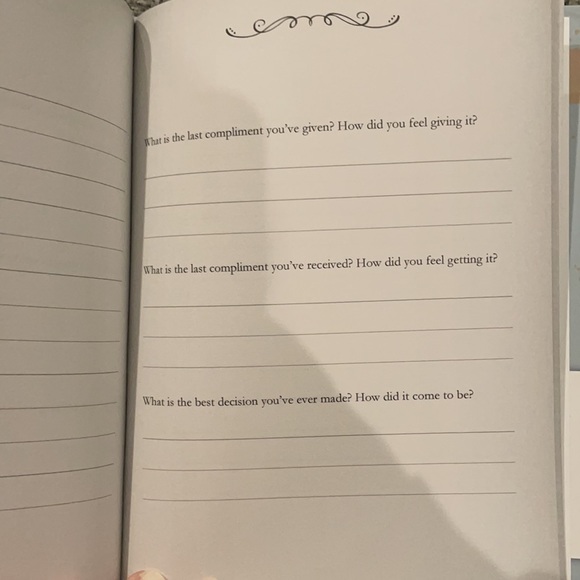 What is the last compliment you've given? How did you feel giving it?
What is the last compliment you've received? How did you feel getting it?
What is the best decision you've ever made? How did it come to be?